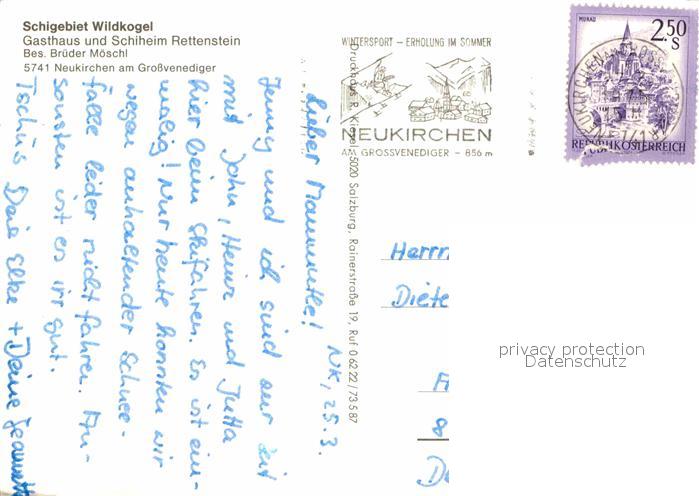 Schigebiet Wildkogel
Gasthaus und Schiheim Rettenstein
Bes. Brüder Möschl
5741 Neukirchen am Großvenediger
WINTERSPORT – ERHOLUNG IM SOMMER
NEUKIRCHEN
AM GROSSVENEDIGER – 856 m
MURAU
2.50
S
REPUBLIK ÖSTERREICH
Druckhaus R. Kiesel, 5020 Salzburg, Rainerstraße 19, Ruf 0 62 22 / 73 5 87
NK, 25.3.
Lieber
Jenny und ich sind zur Zeit
mit John, Heinz und Jutta
hier beim Skifahren. Es ist ein-
malig! Nur heute konnten wir
wegen anhaltender Schnee-
fälle leider nicht fahren. An-
sonsten ist es irr gut.
Tschüs Deine Elke + Deine
Herrn
Diete
privacy protection
Datenschutz